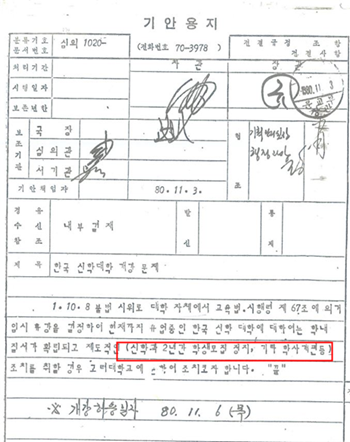 기 안 용 지
분류기호
문서번호
심의 1020-
(전화번호 70-3978)
전결규정 조 항
전결사항
처리기간
차 관
장 관
시행일자
80.11.3
보존연한
보조기관
국 장
심의관
서기관
협
조
기안책임자
80.11.3.
경유
수신
참조
내부결재
발신
통제
제목
한국 신학대학 개강 문제
1. 10.8 불법 시위로 대학 자체에서 교육법시행령 제67조에 의거
임시 휴강을 결정하여 현재까지 휴업중인 한국 신학 대학에 대하여는 학내
질서가 확립되고 제도적인 (신학과 2년간 학생모집 정지, 기타 학사개편등)
조치를 취할 경우 그 대학교에
조치코자 합니다. "끝"
※ 개강허용일자 80. 11. 6 (목)